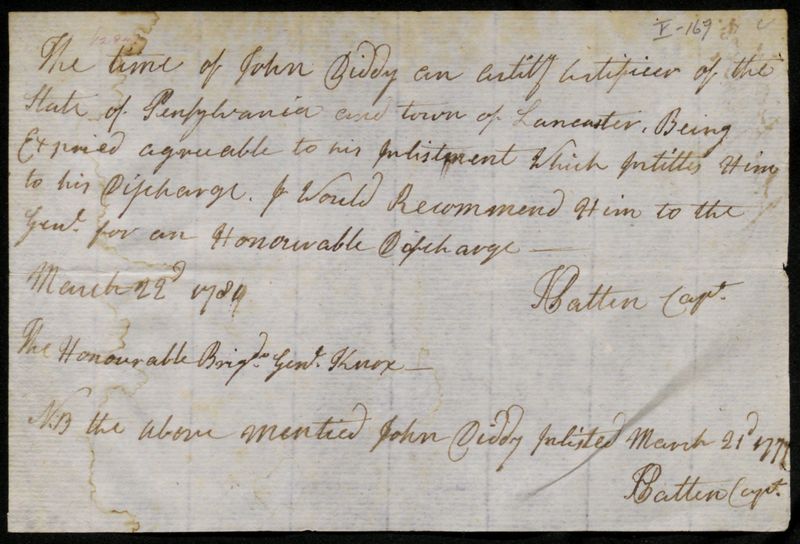 V-169
The time of John Diddy an artilly artificer of the
State of Pensylvania and town of Lancaster, Being
Expried agreeable to his Inlistment Which Intitles Him
to his Discharge. I Would Recommend Him to the
Genl. for an Honourable Discharge —
March 22d
Patten Capt.
The Honourable Brigd. Genl. Knox —
NB the above mentied John Diddy Inlisted March 21d 1777
Patten Capt.